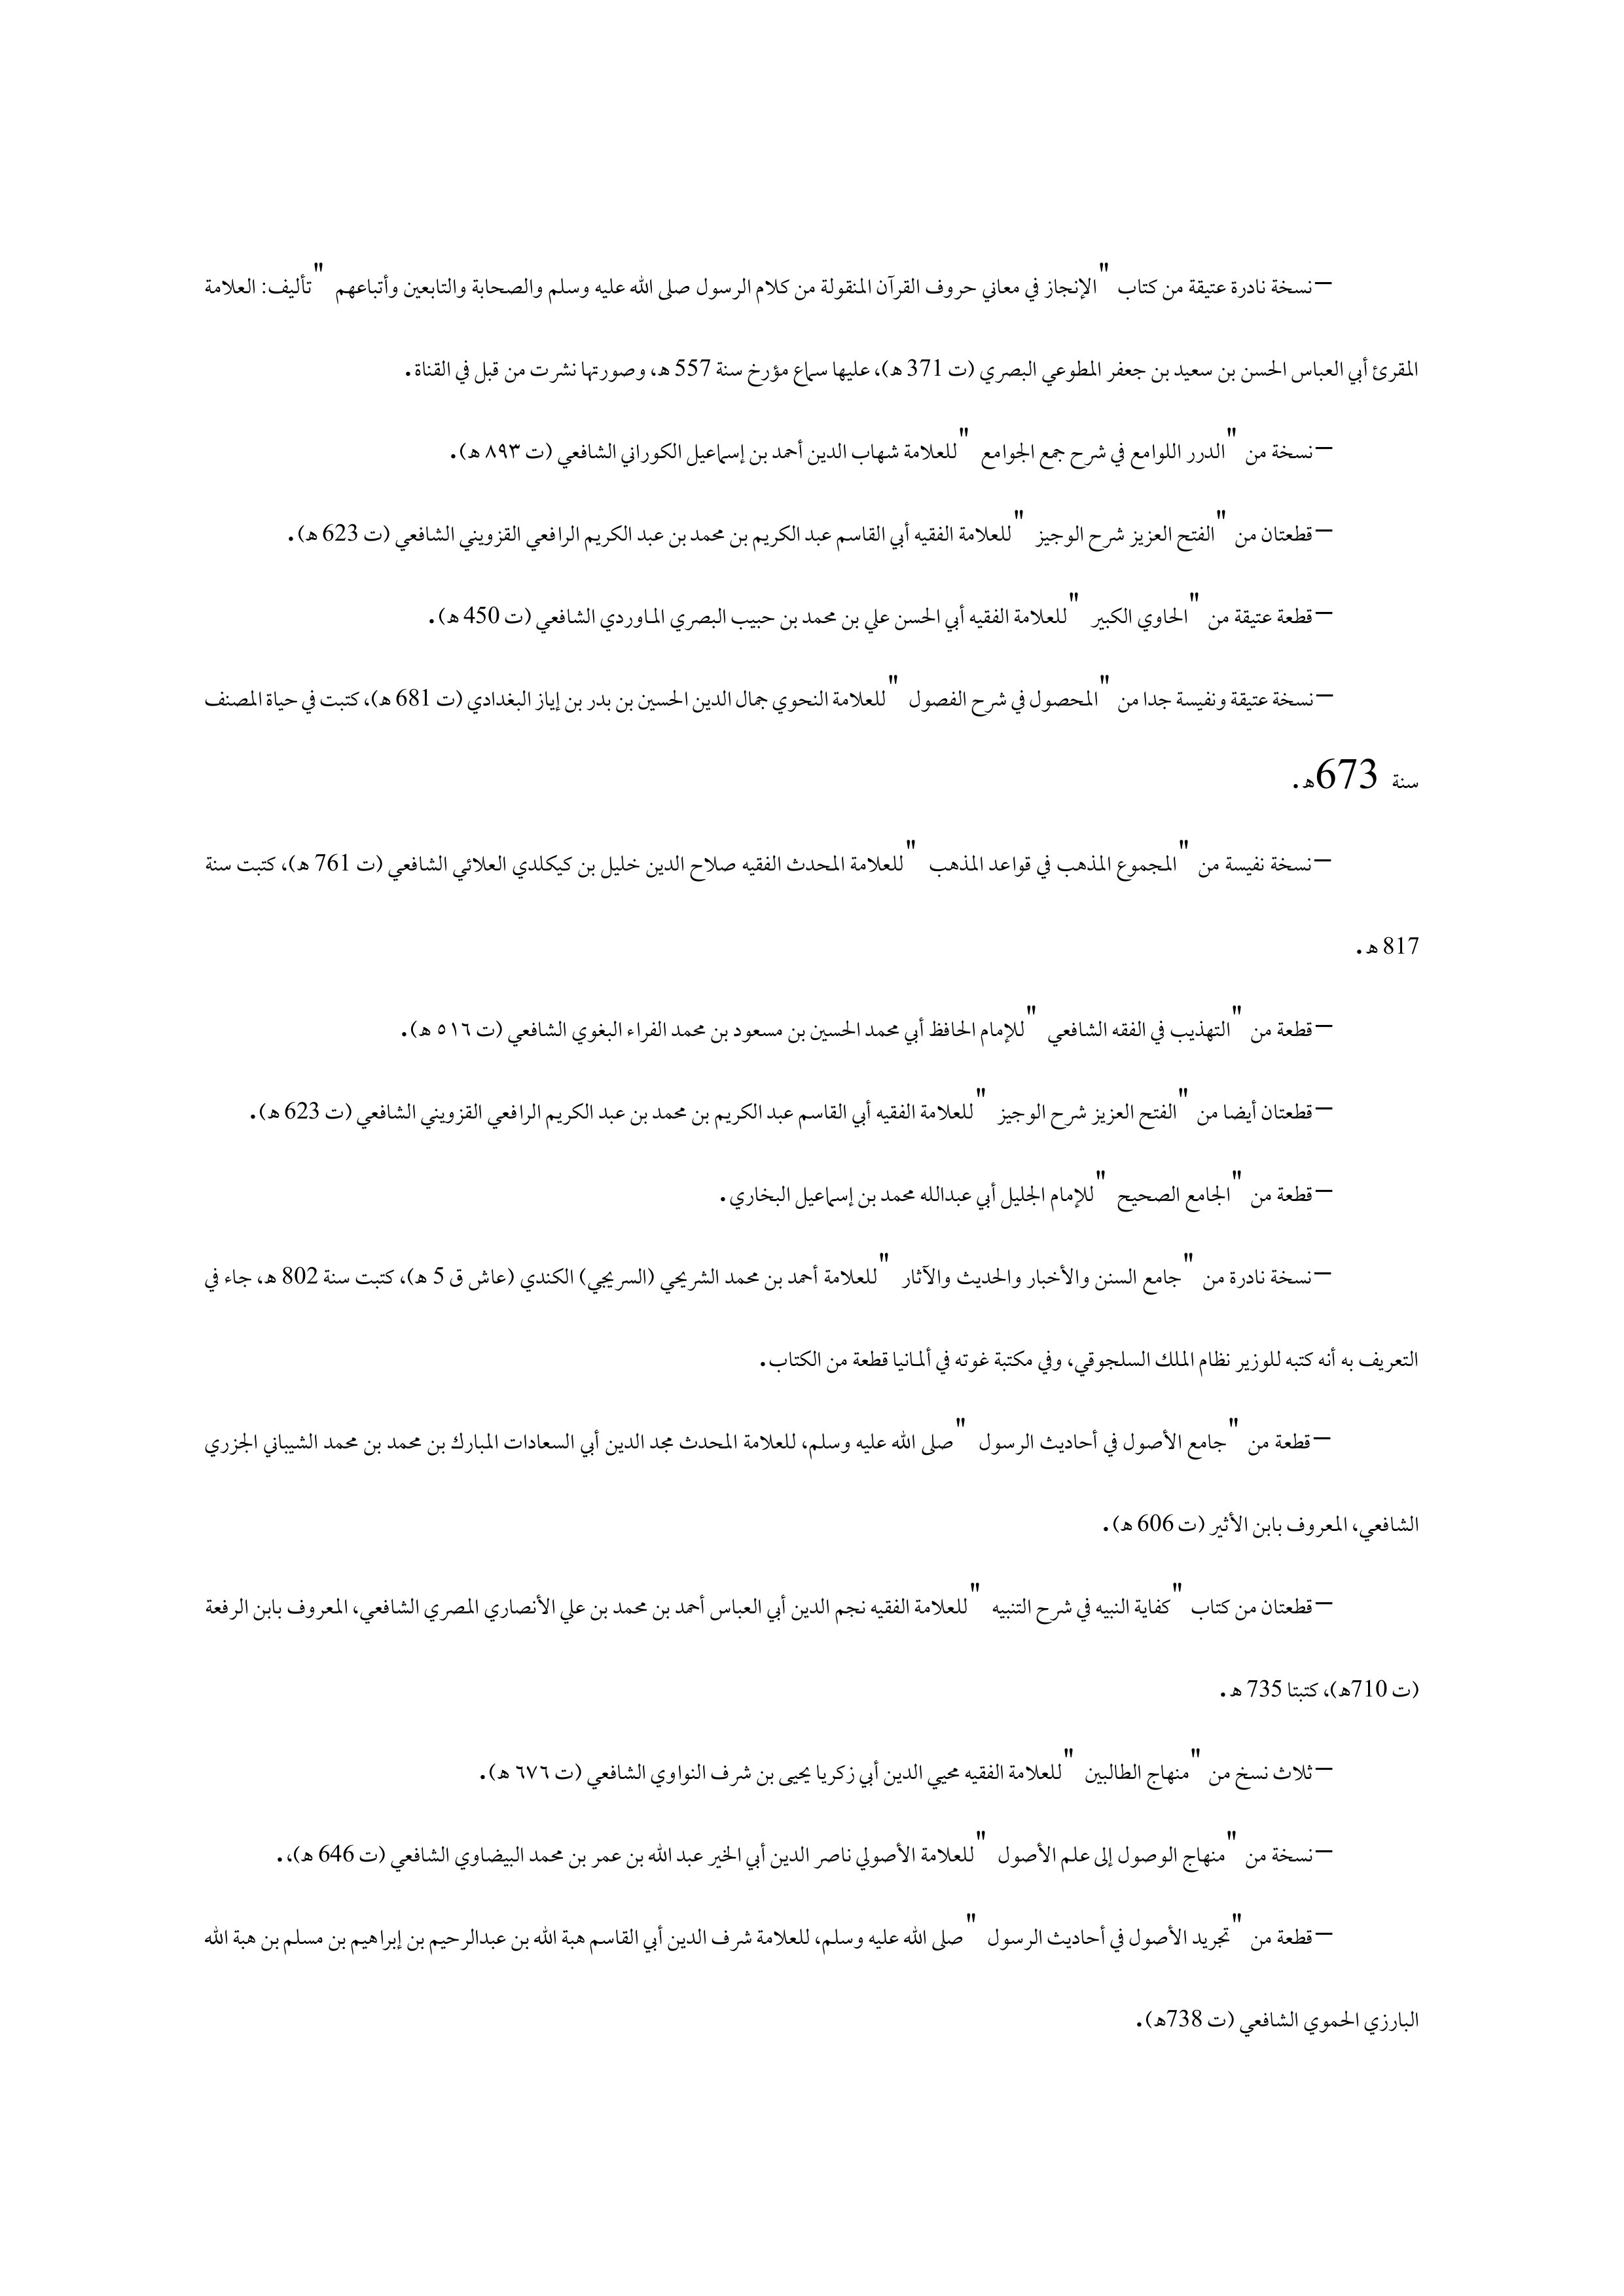 –نسخة نادرة عتيقة من كتاب "الإنجاز في معاني حروف القرآن المنقولة من كلام الرسول صلى الله عليه وسلم والصحابة والتابعين وأتباعهم "تأليف: العلامة
المقرئ أبي العباس الحسن بن سعيد بن جعفر المطوعي البصري (ت 371 هـ)، عليها سماع مؤرخ سنة 557 هـ، وصورتها نشرت من قبل في القناة.
–نسخة من "الدرر اللوامع في شرح جمع الجوامع "للعلامة شهاب الدين أحمد بن إسماعيل الكوراني الشافعي (ت ٨٩٣ هـ).
–قطعتان من "الفتح العزيز شرح الوجيز "للعلامة الفقيه أبي القاسم عبد الكريم بن محمد بن عبد الكريم الرافعي القزويني الشافعي (ت 623 هـ).
–قطعة عتيقة من "الحاوي الكبير "للعلامة الفقيه أبي الحسن علي بن محمد بن حبيب البصري الماوردي الشافعي (ت 450 هـ).
–نسخة عتيقة ونفيسة جدا من "المحصول في شرح الفصول "للعلامة النحوي جمال الدين الحسين بن بدر بن إياز البغدادي (ت 681 هـ)، كتبت في حياة المصنف
سنة 673هـ.
–نسخة نفيسة من "المجموع المذهب في قواعد المذهب "للعلامة المحدث الفقيه صلاح الدين خليل بن كيكلدي العلائي الشافعي (ت 761 هـ)، كتبت سنة
817 هـ.
–قطعة من "التهذيب في الفقه الشافعي "للإمام الحافظ أبي محمد الحسين بن مسعود بن محمد الفراء البغوي الشافعي (ت ٥١٦ هـ).
–قطعتان أيضا من "الفتح العزيز شرح الوجيز "للعلامة الفقيه أبي القاسم عبد الكريم بن محمد بن عبد الكريم الرافعي القزويني الشافعي (ت 623 هـ).
–قطعة من "الجامع الصحيح "للإمام الجليل أبي عبدالله محمد بن إسماعيل البخاري.
–نسخة نادرة من "جامع السنن والأخبار والحديث والآثار "للعلامة أحمد بن محمد الشريحي (السريجي) الكندي (عاش ق 5 هـ)، كتبت سنة 802 هـ، جاء في
التعريف به أنه كتبه للوزير نظام الملك السلجوقي، وفي مكتبة غوته في ألمانيا قطعة من الكتاب.
–قطعة من "جامع الأصول في أحاديث الرسول "صلى الله عليه وسلم، للعلامة المحدث مجد الدين أبي السعادات المبارك بن محمد بن محمد الشيباني الجزري
الشافعي، المعروف بابن الأثير (ت 606 هـ).
–قطعتان من كتاب "كفاية النبيه في شرح التنبيه "للعلامة الفقيه نجم الدين أبي العباس أحمد بن محمد بن علي الأنصاري المصري الشافعي، المعروف بابن الرفعة
(ت 710هـ)، كتبتا 735 هـ.
–ثلاث نسخ من "منهاج الطالبين "للعلامة الفقيه محيي الدين أبي زكريا يحيى بن شرف النواوي الشافعي (ت ٦٧٦ هـ).
–نسخة من "منهاج الوصول إلى علم الأصول "للعلامة الأصولي ناصر الدين أبي الخير عبد الله بن عمر بن محمد البيضاوي الشافعي (ت 646 هـ)،.
–قطعة من "تجريد الأصول في أحاديث الرسول "صلى الله عليه وسلم، للعلامة شرف الدين أبي القاسم هبة الله بن عبدالرحيم بن إبراهيم بن مسلم بن هبة الله
البارزي الحموي الشافعي (ت 738هـ).